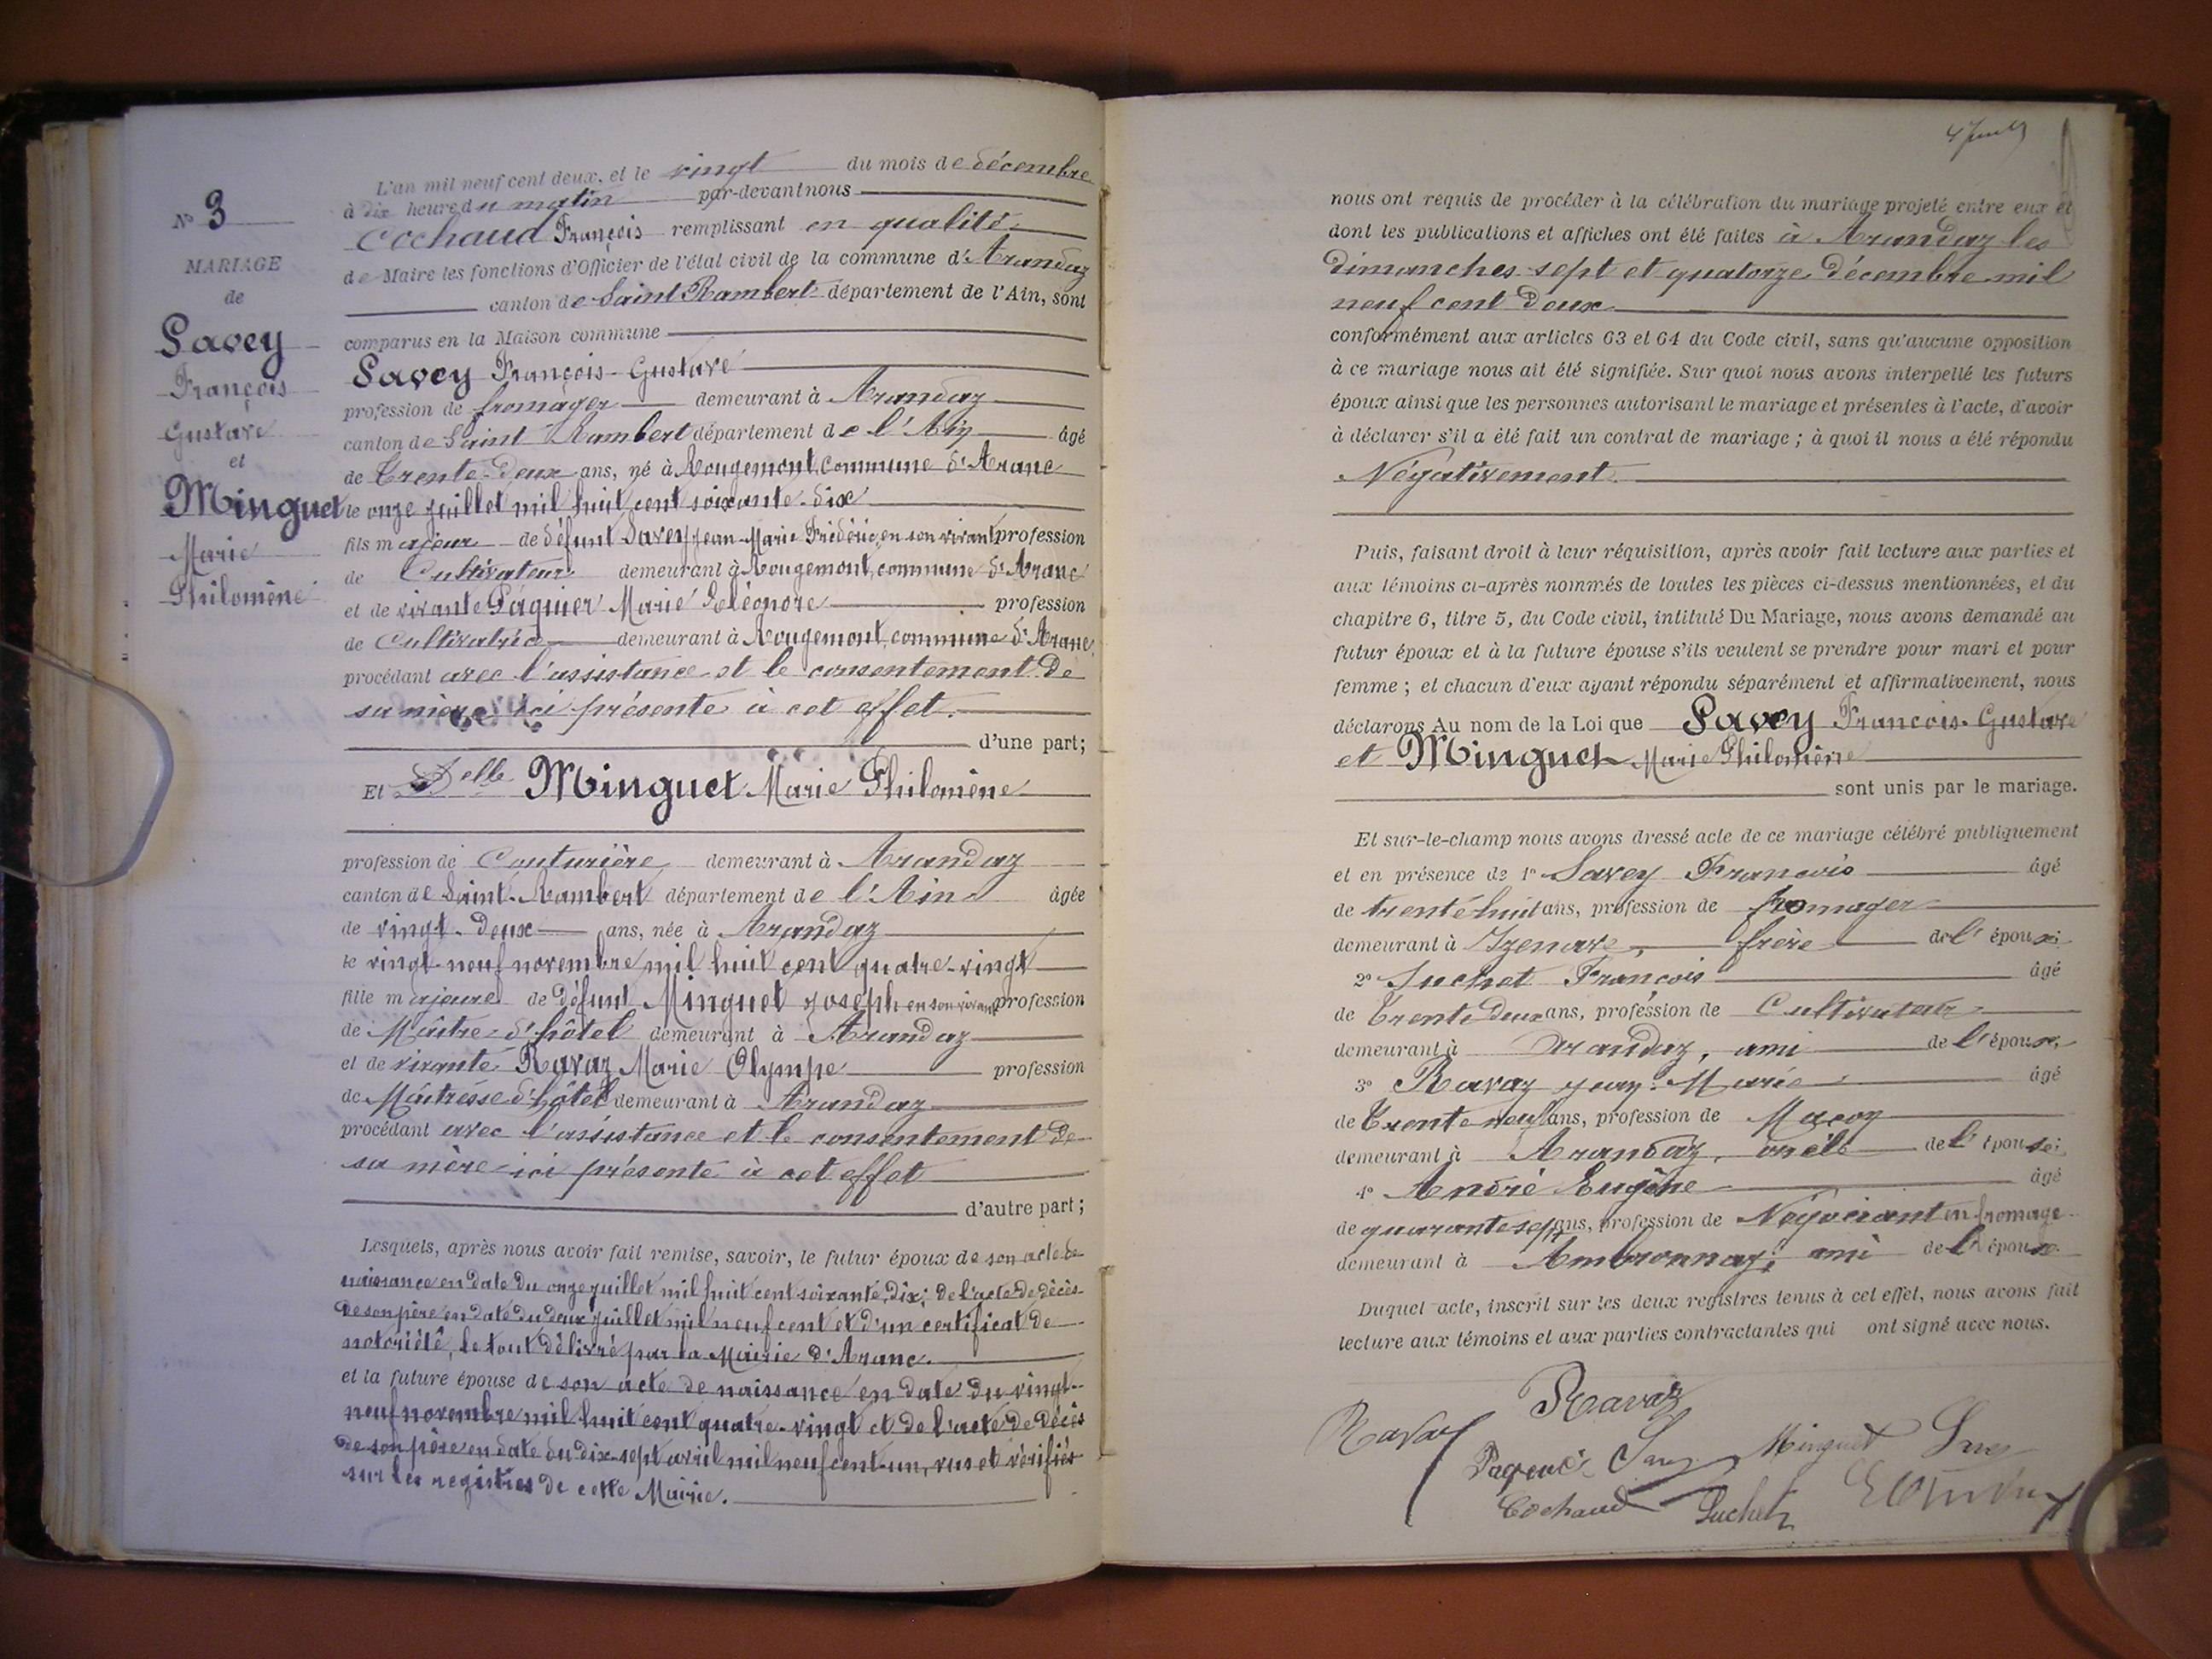 N° 3
MARIAGE
de
Savey
François
Gustave
et
Minguet
Marie
Philomène
L'an mil neuf cent deux, et le vingt du mois de décembre
à dix heure du matin par-devant nous
Cochaud François remplissant en qualité
de Maire les fonctions d'Officier de l'état civil de la commune d'Arandaz
canton de Saint Rambert département de l'Ain, sont
comparus en la Maison commune
Savey François-Gustave
profession de fromager demeurant à Arandaz
canton de Saint Rambert département de l'Ain âgé
de Trente-deux ans, né à Rougemont, commune d'Aranc
le onze juillet mil huit cent soixante-dix
fils majeur de défunt Savey Jean-Marie Frédéric, en son vivant profession
de Cultivateur demeurant à Rougemont, commune d'Aranc
et de vivante Páquier Marie Eléonore profession
de Cultivatrice demeurant à Rougemont, commune d'Aranc,
procédant avec l'assistance et le consentement de
sa mère ici présente à cet effet.
d'une part;
Et Delle Minguet Marie Philomène
profession de Couturière demeurant à Arandaz
canton de Saint-Rambert département de l'Ain âgée
de vingt-deux ans, née à Arandaz
le vingt-neuf novembre mil huit cent quatre-vingt
fille majeure de défunt Minguet Joseph en son vivant profession
de Maître-d'hôtel demeurant à Arandaz
et de vivante Ravaz Marie Olympe profession
de Maîtresse d'hôtel demeurant à Arandaz
procédant avec l'assistance et le consentement de
sa mère ici présente à cet effet
d'autre part;
Lesquels, après nous avoir fait remise, savoir, le futur époux de son acte de
naissance en date du onze juillet mil huit cent soixante-dix; de l'acte de décès
de son père en date du deux juillet mil neuf cent et d'un certificat de
notoriété, le tout délivré par la Mairie d'Aranc.
et la future épouse de son acte de naissance en date du vingt-
neuf novembre mil huit cent quatre-vingt et de l'acte de décès
de son père en date du dix-sept avril mil neuf cent-un, vus et vérifiés
sur les registres de cette Mairie.
nous ont requis de procéder à la célébration du mariage projeté entre eux et
dont les publications et affiches ont été faites à Arandaz les
dimanches sept et quatorze décembre mil
neuf cent deux
conformément aux articles 63 et 64 du Code civil, sans qu'aucune opposition
à ce mariage nous ait été signifiée. Sur quoi nous avons interpellé les futurs
époux ainsi que les personnes autorisant le mariage et présentes à l'acte, d'avoir
à déclarer s'il a été fait un contrat de mariage; à quoi il nous a été répondu
Négativement.
Puis, faisant droit à leur réquisition, après avoir fait lecture aux parties et
aux témoins ci-après nommés de toutes les pièces ci-dessus mentionnées, et du
chapitre 6, titre 5, du Code civil, intitulé Du Mariage, nous avons demandé au
futur époux et à la future épouse s'ils veulent se prendre pour mari et pour
femme; et chacun d'eux ayant répondu séparément et affirmativement, nous
déclarons Au nom de la Loi que Savey François-Gustave
et Minguet Marie Philomène
sont unis par le mariage.
Et sur-le-champ nous avons dressé acte de ce mariage célébré publiquement
et en présence de 1° Savey François âgé
de trente huit ans, profession de fromager
demeurant à Izenave, frère de l'époux;
2° Suchet François âgé
de Trente deux ans, profession de Cultivateur
demeurant à Arandaz, ami de l'époux;
3° Ravaz Jean-Marie âgé
de Trente neuf ans, profession de Maçon
demeurant à Arandaz, oncle de l'épouse;
4° André Eugène âgé
de quarante sept ans, profession de Négociant en fromage
demeurant à Ambronnay; ami de l'épouse.
Duquel acte, inscrit sur les deux registres tenus à cet effet, nous avons fait
lecture aux témoins et aux parties contractantes qui ont signé avec nous.
Ravaz
Ravaz
Minguet
Cochaud Suchet